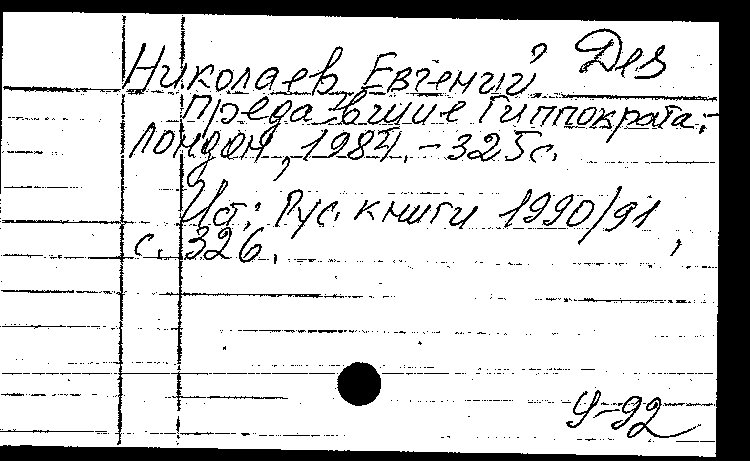 Николаев Евгений Des
Предавшие Гиппократа.-
Лондон, 1984. - 325с.
Ист.: Рус. книги 1990/91,
с. 326.
У-92